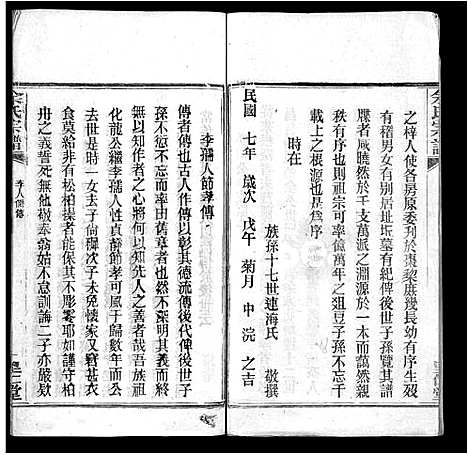 余氏宗譜
之梓人使各房原委刋於棗黎庻㡬長幼有序生殁
有稽男女有别居址坵墳有紀俾後世子孫覽其譜
牒者咸曉然於千支萬派之淵源於一本而萬然親
秩有序則祖宗可率億萬年之俎豆子孫不忘千
載上之根源也是爲序
時在
民國 七年 歲次 戊午 菊月 中浣 之吉
族孫十七世連海氏 敬撰
李孺人節孝傳
傳者傳也古人作傳以彰其德流傳後代俾後世子
孫不愆不忘而率由舊章者也然不發明其義而將
無以知作者之心將何以知先人之善者哉吾族祖
化龍公繼李孺人性貞靜節孝可風于歸數年而公
已去世時一女去子尚穉次子未免懷家又衰甚衣
食莫給非有松柏操者能若是其不彫零耶如謹守柏
舟之義誓死無他敬奉翁姑無或少怠訓誨二子亦嚴欵
余氏宗譜
李人傳